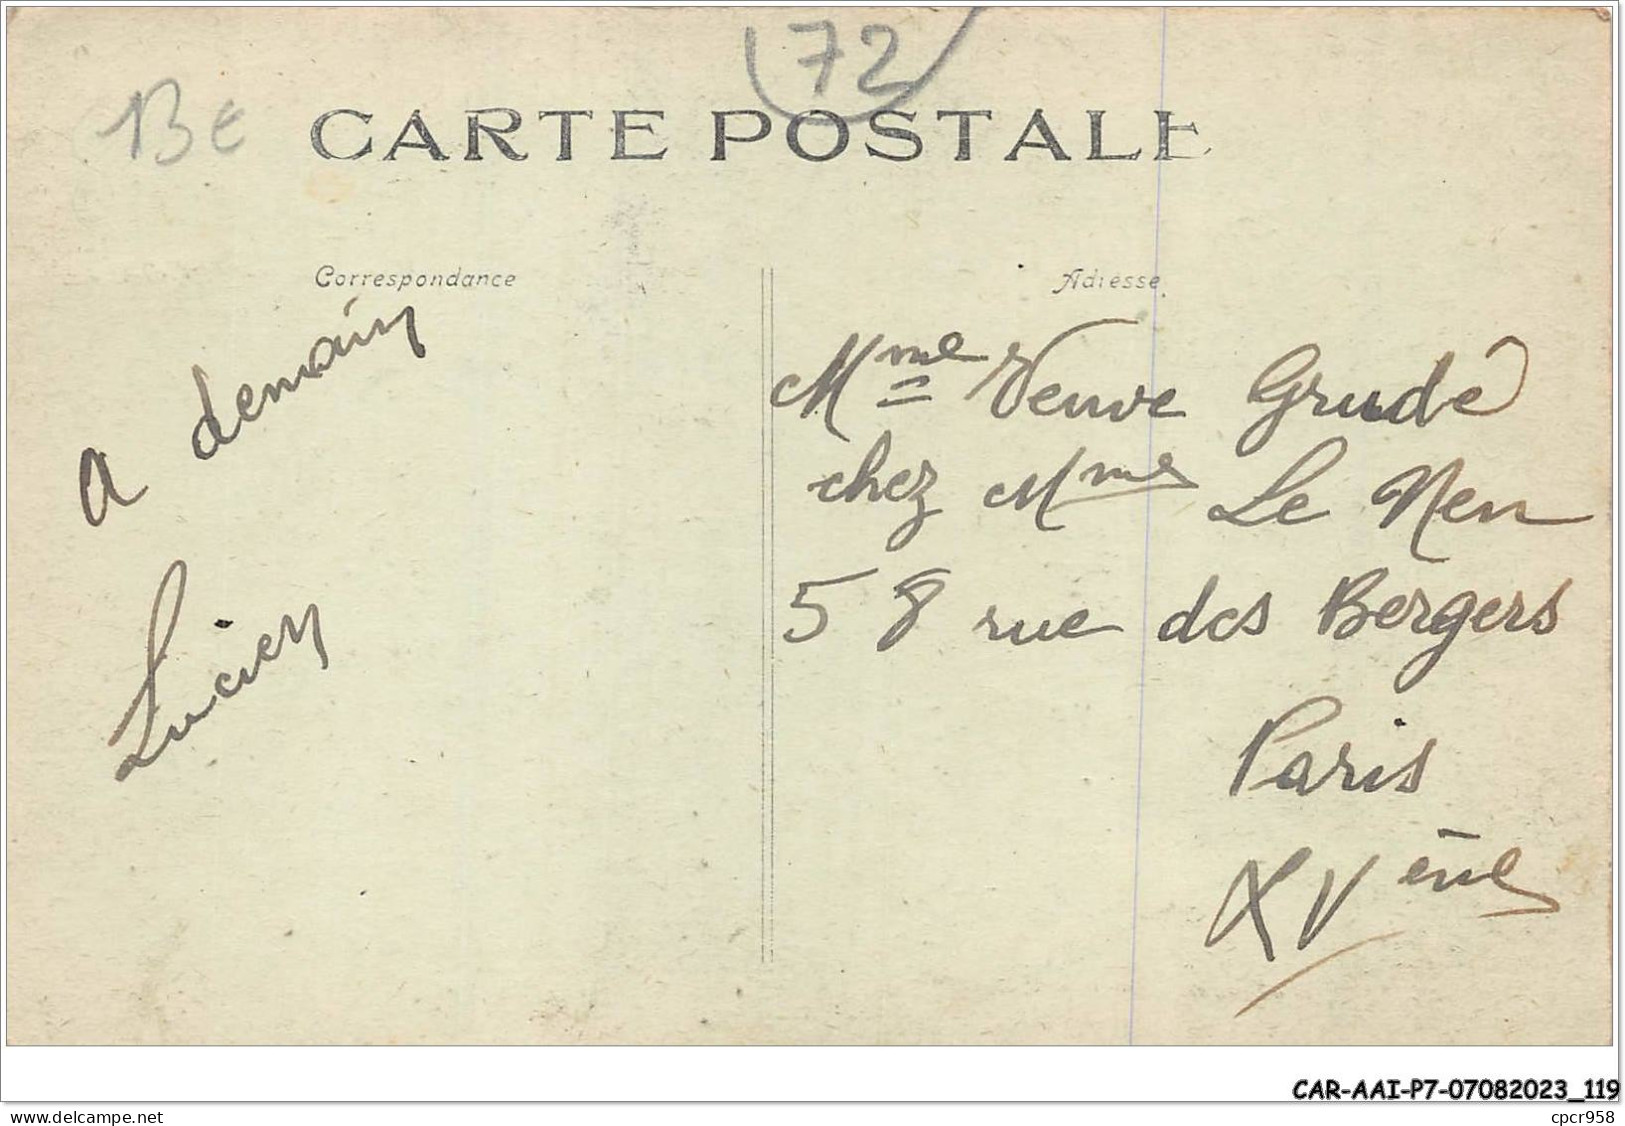 13 €
72
CARTE POSTALE
Correspondance
Adresse
A demain
Lucien
Mme Veuve Grudé
chez Mme Le Nen
58 rue des Bergers
Paris
XVème
CAR-AAI-P7-07082023_119
www.delcampe.net
cpcr958